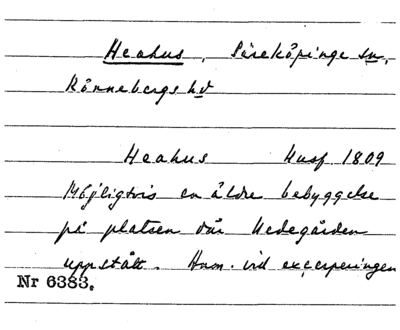 Heahus, Säreköpinge sn,
Rönnebergs hd
Heahus Husf 1809
Möjligtvis en äldre bebyggelse
på platsen där Hedegården
uppstått. Anm. vid excerperingen
Nr 6383.